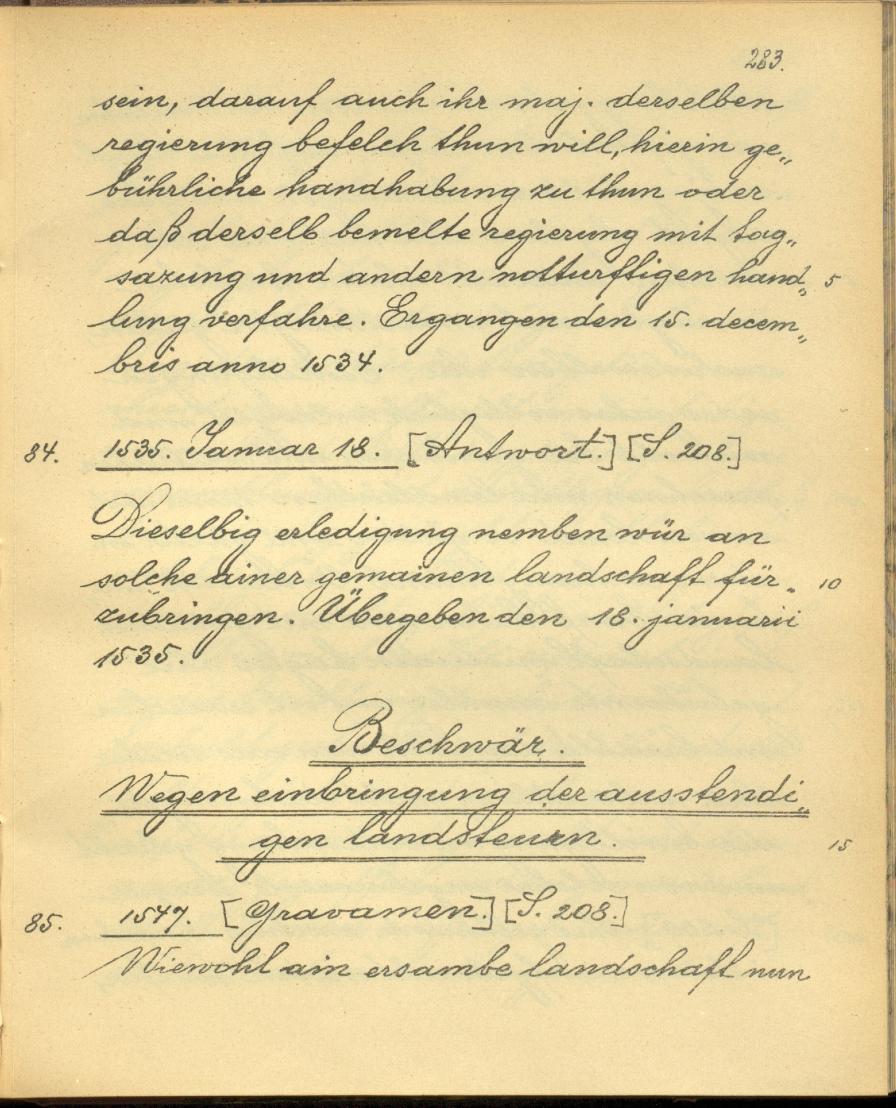 283.
sein, darauf auch ihr maj. derselben
regierung befelch thun will, hierin ge„
bührliche handhabung zu thun oder
daß derselb bemelte regierung mit tag„
sazung und andern notturftigen hand„ 5
lung verfahre. Ergangen den 15. decem„
bris anno 1534.
84. 1535. Januar 18. [Antwort.] [S. 208.]
Dieselbig erledigung nemben wür an
solche ainer gemainen landschaft für„ 10
zubringen. Übergeben den 18. januarii
1535.
Beschwär.
Wegen einbringung der ausstendi„
gen landsteurn. 15
85. 1547. [Gravamen.] [S. 208.]
Wiewohl ain ersambe landschaft nun